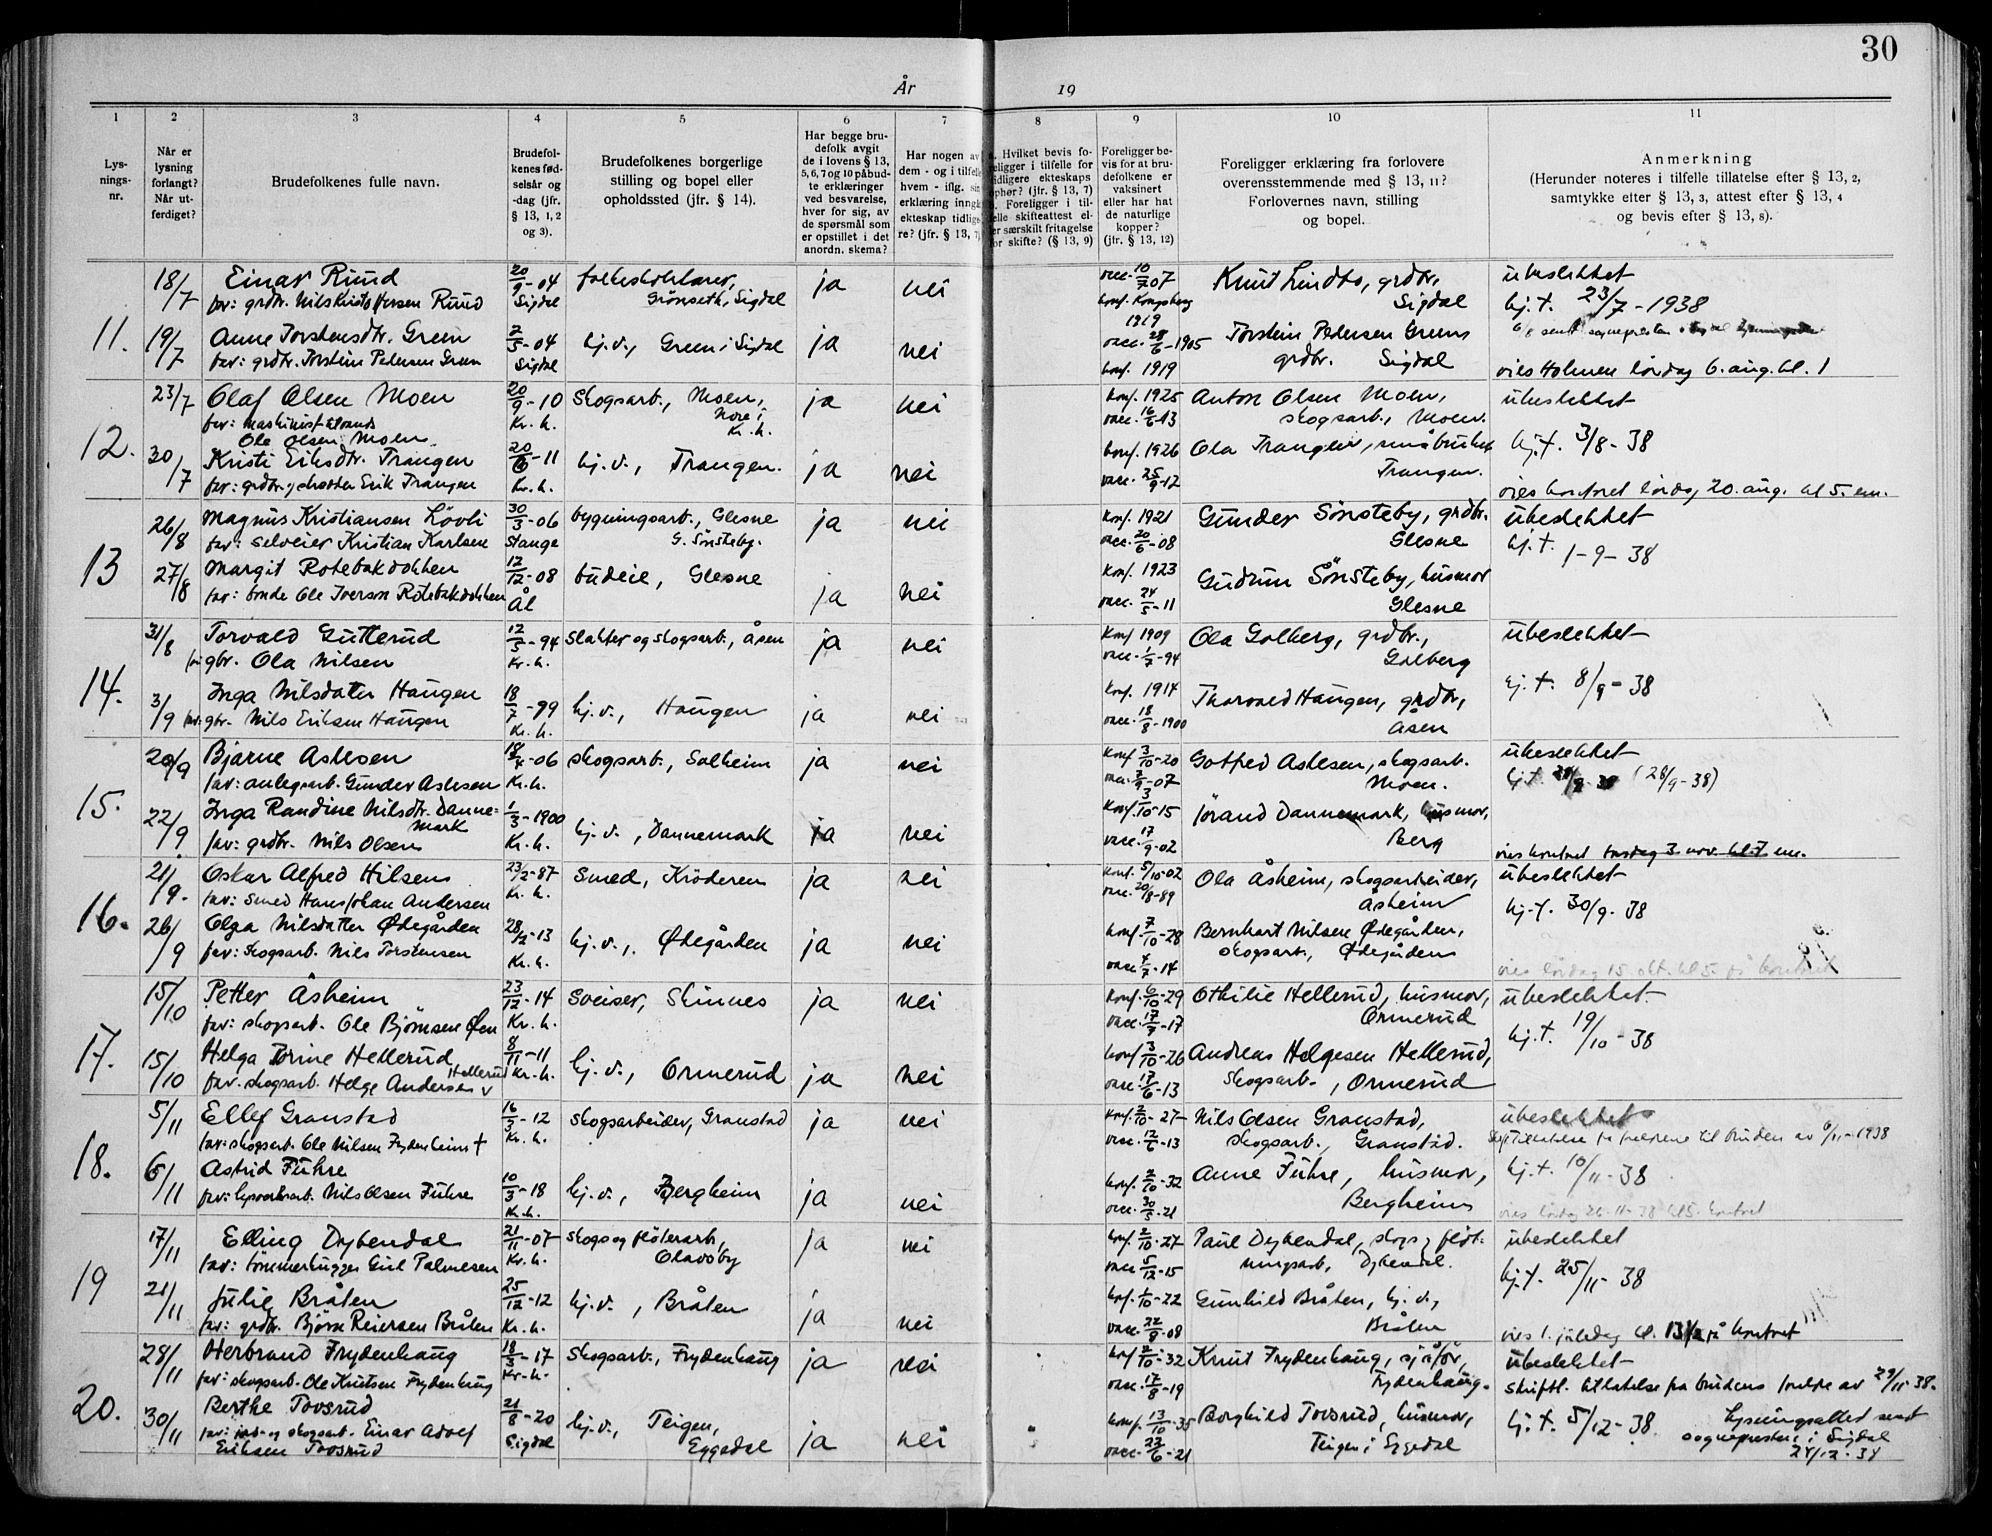 30
År 19
1 2 3 4 5 6 7 8 9 10 11
Lys-
nings-
nr.
Når er
lysning
forlangt?
Når ut-
ferdiget?
Brudefolkenes fulle navn.
Brudefol-
kenes fød-
selsår og
-dag (jfr.
§ 13, 1, 2
og 3).
Brudefolkenes borgerlige
stilling og bopel eller
opholdssted (jfr. § 14).
Har begge bru-
defolk avgit
de i lovens § 13,
5, 6, 7 og 10 påbud-
te erklæringer
ved besvarelse,
hver for sig, av
de spørsmål som
er opstillet i det
anordn. skema?
Har nogen av
dem - og i tilfelle
hvem - iflg. sin
erklæring inngå
ekteskap tidlige
re? (jfr. § 13, 7)
Hvilket bevis fo-
religger i tilfelle for
tidligere ekteskaps
ophør? (jfr. § 13, 7)
Foreligger i til-
felle skifteattest el-
er særskilt fritagelse
for skifte? (§ 13, 9)
Foreligger be-
vis for at bru-
defolkene er
vaksinert
eller har hat
de naturlige
kopper?
(jfr. § 13, 12)
Foreligger erklæring fra forlovere
overensstemmende med § 13, 11?
Forlovernes navn, stilling
og bopel.
Anmerkning
(Herunder noteres i tilfelle tillatelse efter § 13, 2,
samtykke efter § 13, 3, attest efter § 13, 4
og bevis efter § 13, 8).
11.
18/7 Einar Ruud 20/9-04 Sigdal ja nei vacc. 10/7 07 Knut Lindbo, grdbr., Sigdal ubeslektet
konf. Kongsberg 1919 hj.t. 23/7-1938
19/7 Anne Torstensdtr. Green 04 Sigdal hj.v., Green i Sigdal ja nei vacc. 28/6-1905 Torstein Pedersen Green
far: grdbr. Torstein Pedersen Green konf. 1919 grdbr. Sigdal vies Holmen lørdag 6. aug. kl. 1
12.
23/7 Olaf Olsen Moen 20/9-10 Kr.h. Skogsarb., Moen, Nore i Kr.h. ja nei konf. 1925 Anton Olsen Moen, ubeslektet
Ole Olsen Moen vacc. 16/6-13 skogsarb., Moen.
30/7 Kristi Eriksdtr. Trangen 11 Kr.h. hj.v., Trangen. ja nei konf. 1926 Ola Trangen, småbruker hj.t. 3/8-38
vacc. 25/9-12 Trangen. vies kontoret lørdag 20. aug. kl 5. em.
13
26/8 Magnus Kristiansen Løvli 30/3-06 Stange bygningsarb., Glesne G. Sønsteby. ja nei konf. 1921 Gunder Sønsteby, grdbr. ubeslektet
far: selveier Kristian Karlsen vacc. 20/6-08 Glesne hj.t. 1-9-38
27/8 Margit Rotebakdokken 12/12-08 Ål budeie, Glesne ja nei konf. 1923 Gudrun Sønsteby, husmor
far: bonde Ole Iverson Rotebakdokken vacc. 24/5-11 Glesne
14.
31/8 Torvald Gutterud 94 Kr.h. slakter og skogsarb., Åsen ja nei konf 1909 Ola Golberg, grdbr., ubeslektet
gbr. Ola Nilsen Golberg
3/9 Inga Nilsdatter Haugen 18/7-99 Kr.h. hj.v., Haugen ja nei konf. 1914 Thorvald Haugen, grdbr, hj.t. 8/9-38
far: gbr. Nils Eriksen Haugen vacc. 18/8-1900 Åsen
15.
20/9 Bjarne Aslesen 06 Kr.h. skogsarb., Solheim ja nei konf 3/10-20 Gotfred Aslesen, skogsarb. ubeslektet
far: anlegsarb. Gunder Aslesen Moen. (28/9-38)
22/9 Inga Randine Nilsdtr. Dannemark 1/3-1900 Kr.h. hj.v., Dannemark ja nei konf. 3/10-15 Jørand Dannemark, husmor,
far: grdbr. Nils Olsen vacc. 17/9-02 Berg vies kontoret torsdag 3. nov. kl. 7 em.
16.
21/9. Oskar Alfred Hilsen 23/2-87 Kr.h. Smed, Krøderen ja nei konf. 5/10-02 Ola Åsheim, skogsarbeider, ubeslektet
far: smed Hans Johan Andersen vacc. 20/8-89 Åsheim hj.t. 30/9-38
26/9 Olga Nilsdatter Ødegården 28/2-13 Kr.h. hj.v., Ødegården ja nei konf. 7/10-28 Bernhart Nilsen Ødegården,
far: skogsarb. Nils Torstensen vacc 14 skogsarb., Ødegården vies lørdag 15. okt. kl 5. på kontoret
17.
15/10 Petter Åsheim 23/12-14 Kr.h. Sveiser, Skinnes ja nei konf. 6/10-29 Othilie Hellerud, husmor, ubeslektet.
far: skogsarb. Ole Bjørnsen Øen 17 Ormerud hj.t. 19/10-38
15/10 Helga Torine Hellerud 8/11-11 Kr.h. hj.v., Ormerud ja nei konf 3/10-26 Andreas Helgesen Hellerud,
far: skogsarb. Helge Andersen Hellerud vacc. 17/6-13 skogsarb., Ormerud
18.
5/11 Ellef Granstad 16/3-12 Kr.h. skogsarbeider, Granstad ja nei konf. 2/10-27 Nils Olsen Granstad, ubeslektet
far: skogsarb. Ole Nilsen Frydenheim + vacc. 13 skogsarb., Granstad.
6/11 Astrid Fuhre 10/3-18 Kr.h. hj.v., Bergheim ja nei konf. 2/10-32 Anne Fuhre, husmor, hj.t. 10/11-38
Nils Olsen Fuhre vacc. 30/5-21 Bergheim vies lørdag 26-11-38 kl 5. kontoret
19
17/11 Elling Dybendal 21/11-07 Kr.h. Skogs og fløterarb, Olavsby ja nei konf. 2/10-27 Paul Dybendal, skogs og fløt- ubeslektet
far: tømmerhugger vacc 5/12-15 ningsarb, Dybendal. hj.t. 25/11-38
21/11 Julie Bråten 25/12-12 Kr.h. hj.v., Bråten ja nei konf. 1/10-22 Gunhild Bråten, hj.v.,
far: grdbr. Bjørn Reiersen Bråten vacc. 22/8-08 Bråten vies 1. juledag kl. 13 1/2 på kontoret
20.
28/11 Herbrand Frydenhaug 18/3-17 Kr.h. Skogsarb., Frydenhaug ja nei konf 2/10-32 Knut Frydenhaug, sjåfør, ubeslektet
far: skogsarb. Ole Knutsen Frydenhaug vacc. 17/8-19 Frydenhaug. skriftl. tillatelse fra brudens foreldre av 29/11-38.
30/11 Berthe Tovsrud 21/8-20 Sigdal hj.v., Teigen, Eggedal ja nei konf. 13/10-35 Borghild Tovsrud, husmor, hj.t. 5/12-38 Lysningsattest sendt
far: jord- og skogsarb. Einar Adolf Eriksen Tovsrud vacc. 23/6-21 Teigen i Eggedal sogneprestene i Sigdal